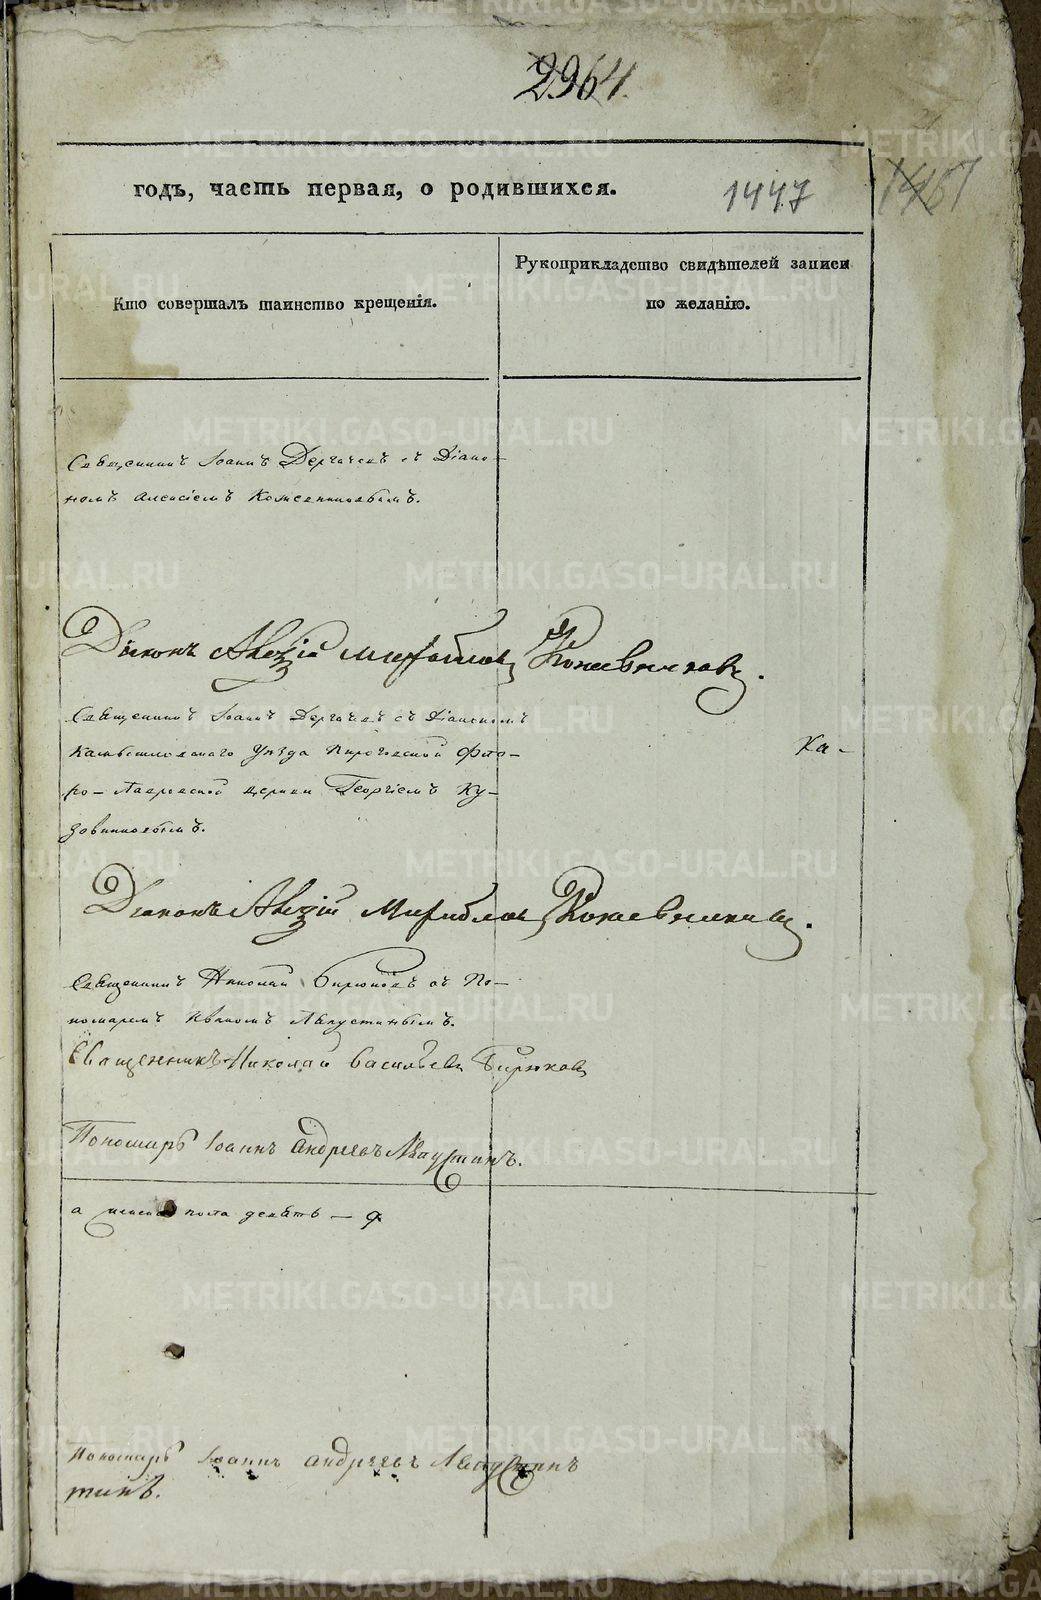 2964.
годъ, часть первая, о родившихся.
1447
1467
Кто совершалъ таинство крещенія.
Рукоприкладство свидѣтелей записи
по желанію.
Священникъ Іоаннъ Дергачевъ съ Діако-
номъ Алексіемъ Кожевниковымъ.
Діаконъ Алексій Михайловъ Кожевниковъ.
Священникъ Іоаннъ Дергачевъ съ Діакономъ
Камышловскаго Уѣзда Пироговской Фло-
Ка-
ро-Лавровской церкви Георгіемъ Ку-
зовниковымъ.
Діаконъ Алексій Михайловъ Кожевниковъ.
Священникъ Николай Бирюковъ съ По-
номаремъ Іваномъ Лапустинымъ.
Священникъ Николай Васильевъ Бирюковъ
Пономарь Іоаннъ Андреевъ Лапустинъ.
а пола девять — 9
Пономарь Іоаннъ Андреевъ
тинъ.